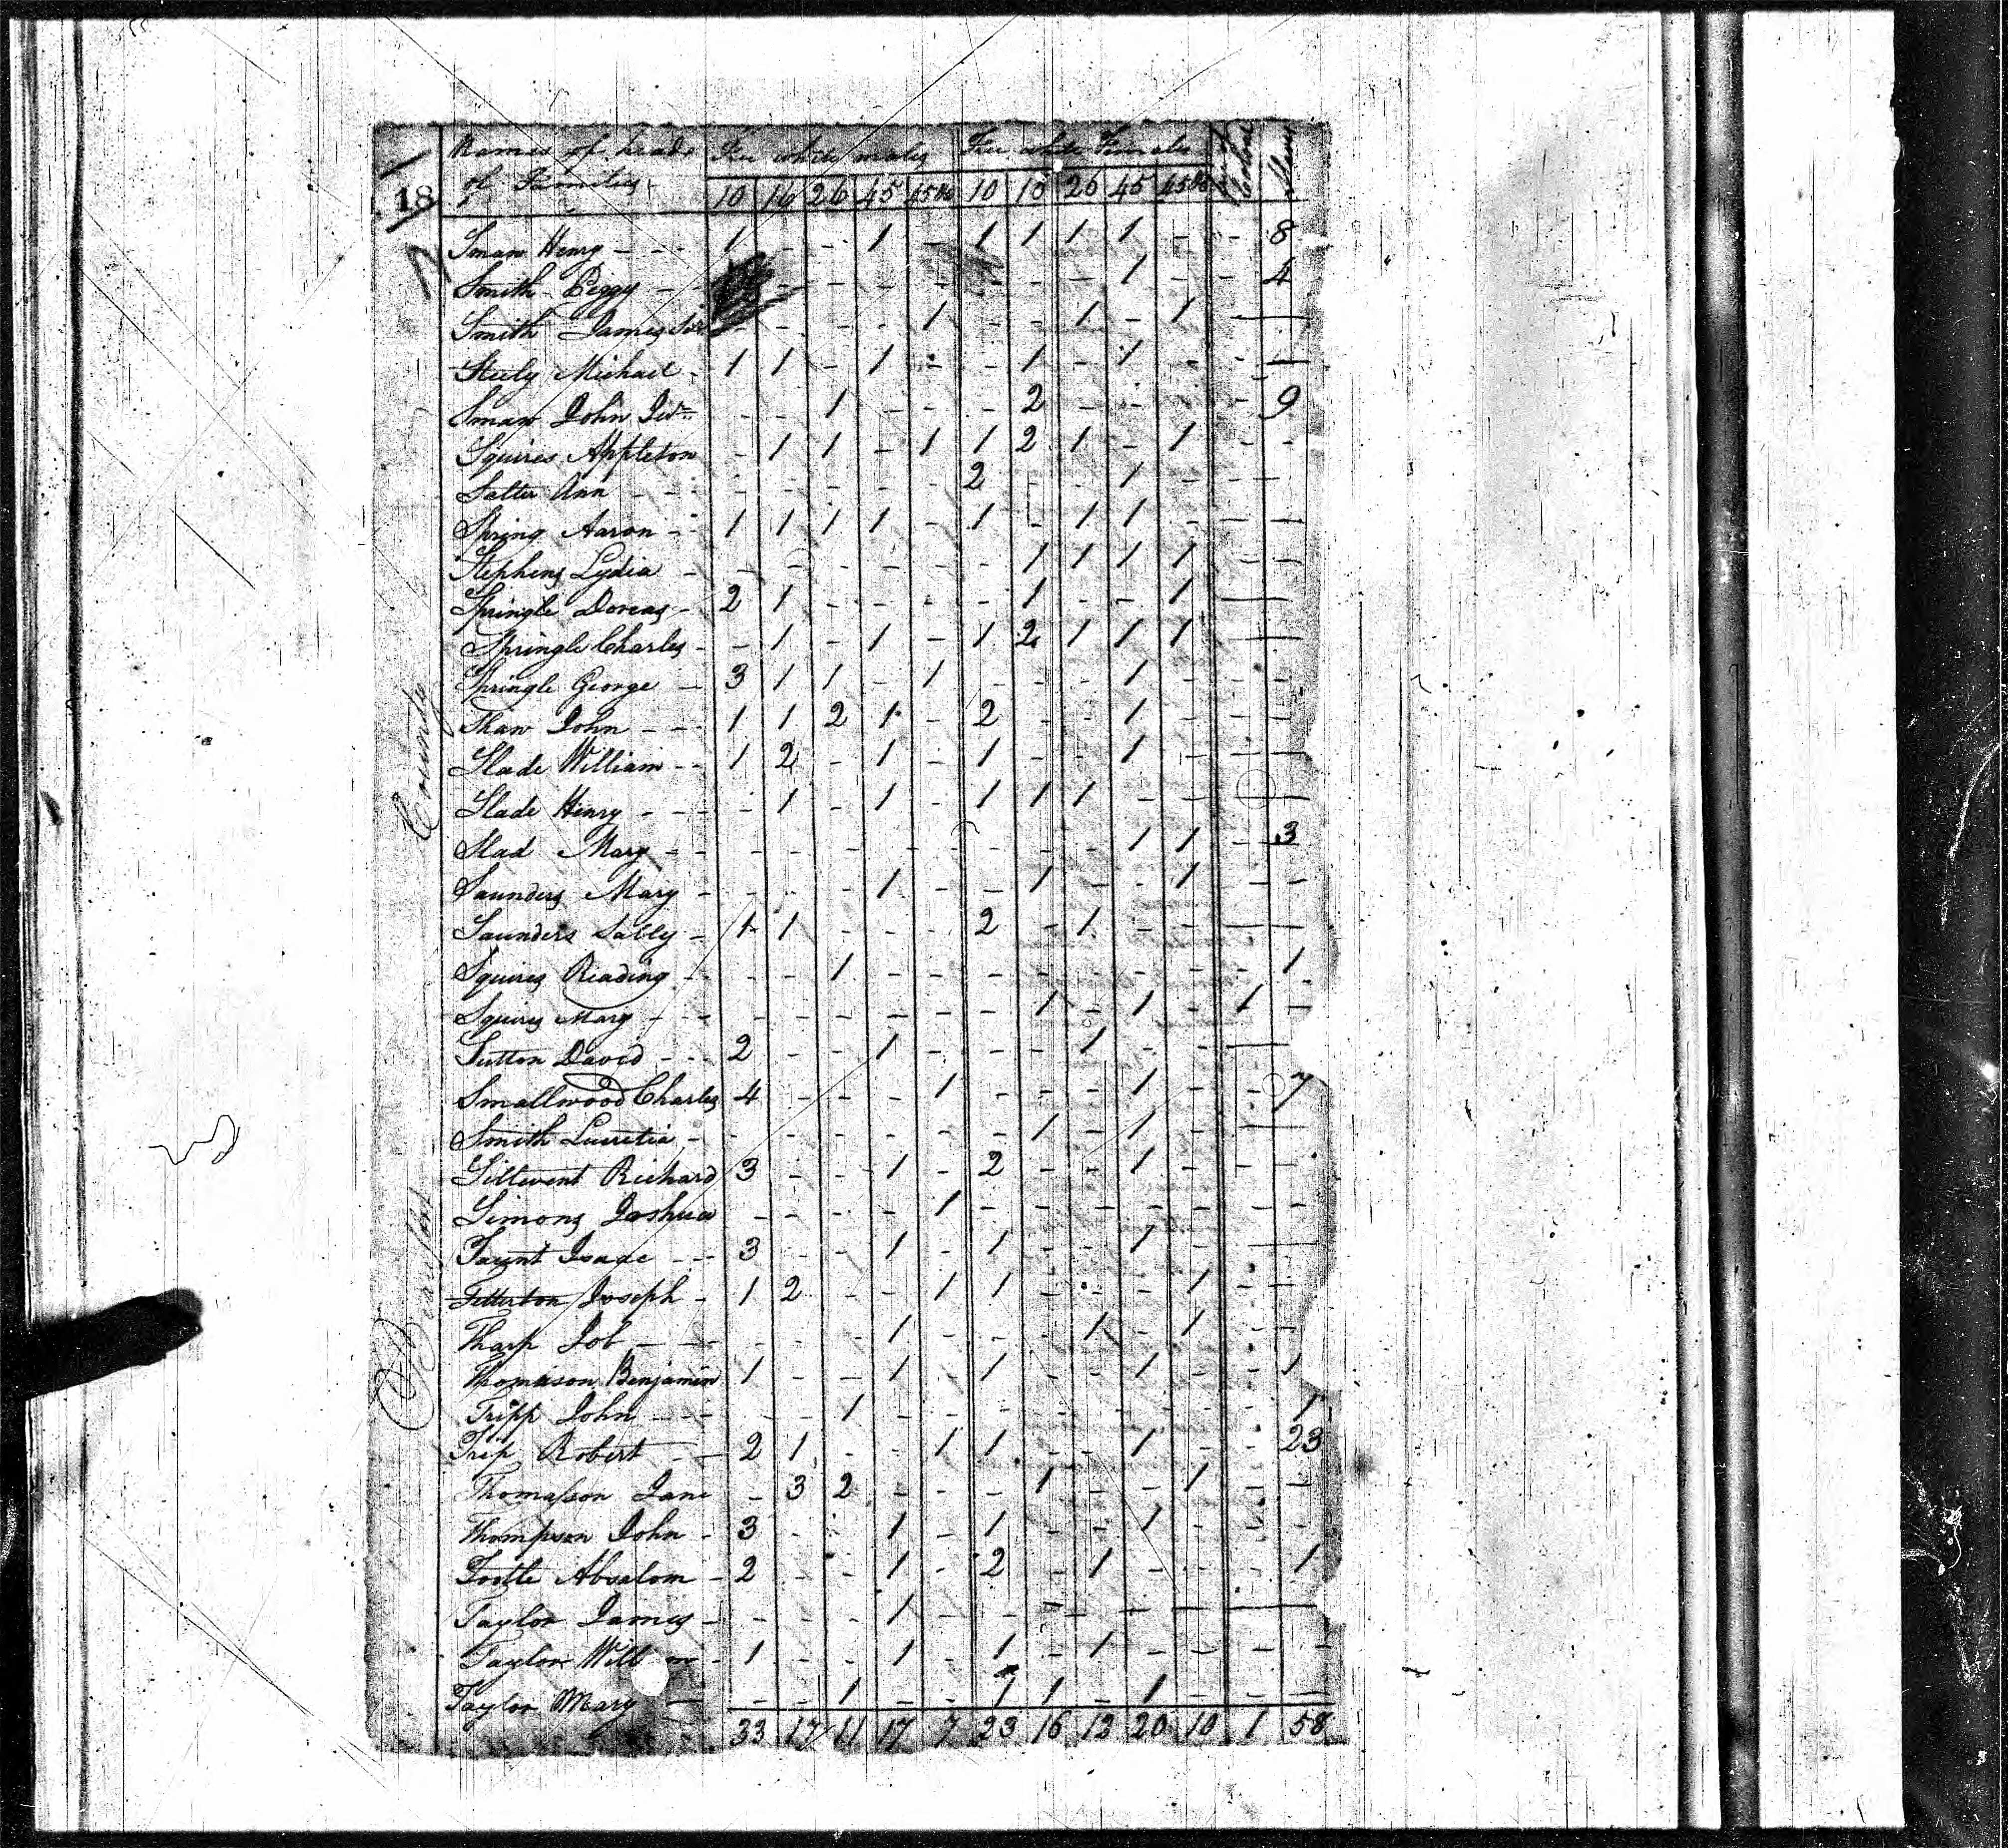 Names of heads Free white males Free white Females Slaves
18 of Families 10 16 26 45 45 &c 10 16 26 45 45 &c
Smaw Henry - - - 1 - - 1 - 1 1 1 1 - - 8
Smith Peggy - - - - - - - - - 1 - - 4
Smith James Senr - - - - 1 - - 1 - 1 - -
Steely Michael - 1 1 - 1 - - 1 - 1 - - -
Smaw John Junr - - 1 - - - 2 - - - - 9
Squires Appleton - 1 1 - 1 1 2 1 - 1 - -
Salter Ann - - - - - - - - 2 - - 1 - - -
Spring Aaron - - 1 1 1 1 - 1 - 1 1 - - -
Stephens Lydia - - - - - - - 1 1 1 1 - -
Springle Dorcas - 2 1 - - - - 1 - - 1 - -
Springle Charles - - 1 - 1 - 1 2 1 1 1 - -
Springle George - 3 1 1 - 1 - - - 1 - - -
Shaw John - - - 1 1 2 1 - 2 - - 1 - - -
Slade William - - 1 2 - 1 - 1 - - 1 - - -
Slade Henry - - - - 1 - 1 - 1 1 1 - - - -
Slad Mary - - - - - - - - - - 1 1 - 3
Saunders Mary - - - - 1 - - 1 - - 1 - -
Saunders Sally - 1 1 - - - 2 - 1 - - - -
Squires Reading - - - 1 - - - - - - - - 1
Squires Mary - - - - - - - - - 1 - 1 - 1 -
Sutton David - - 2 - - 1 - - - 1 - - - -
Smallwood Charles 4 - - - 1 - - - 1 - - 7
Smith Lucretia - - - - - - - 1 - 1 - - -
Sillevent Richard 3 - - 1 - 2 - - 1 - - -
Simons Joshua - - - - 1 - - - - - - -
Taunt Isaac - - - 3 - - 1 - 1 - - 1 - - -
Tetterton Joseph - 1 2 - - 1 1 - - - 1 - -
Tharp Job - - - - - 1 - - - 1 - 1 - -
Thomason Benjamin 1 - - 1 - 1 - - 1 - - 1
Tripp John - - - - - 1 - - - - - - - - 1
Trip Robert - - 2 1 - - 1 1 - - 1 - - 23
Thomasson Jane - 3 2 - - - 1 - - 1 - -
Thompson John - 3 - - 1 - 1 - - 1 - - -
Tootle Absalom - 2 - - 1 - 2 - 1 - - - 1
Taylor James - - - - 1 - - - - - - - -
Taylor Will m - 1 - - 1 - 1 - 1 - - - -
Taylor Mary - - - 1 - - 1 1 - 1 - - -
33 17 11 17 7 23 16 12 20 10 1 58
County
Beaufort